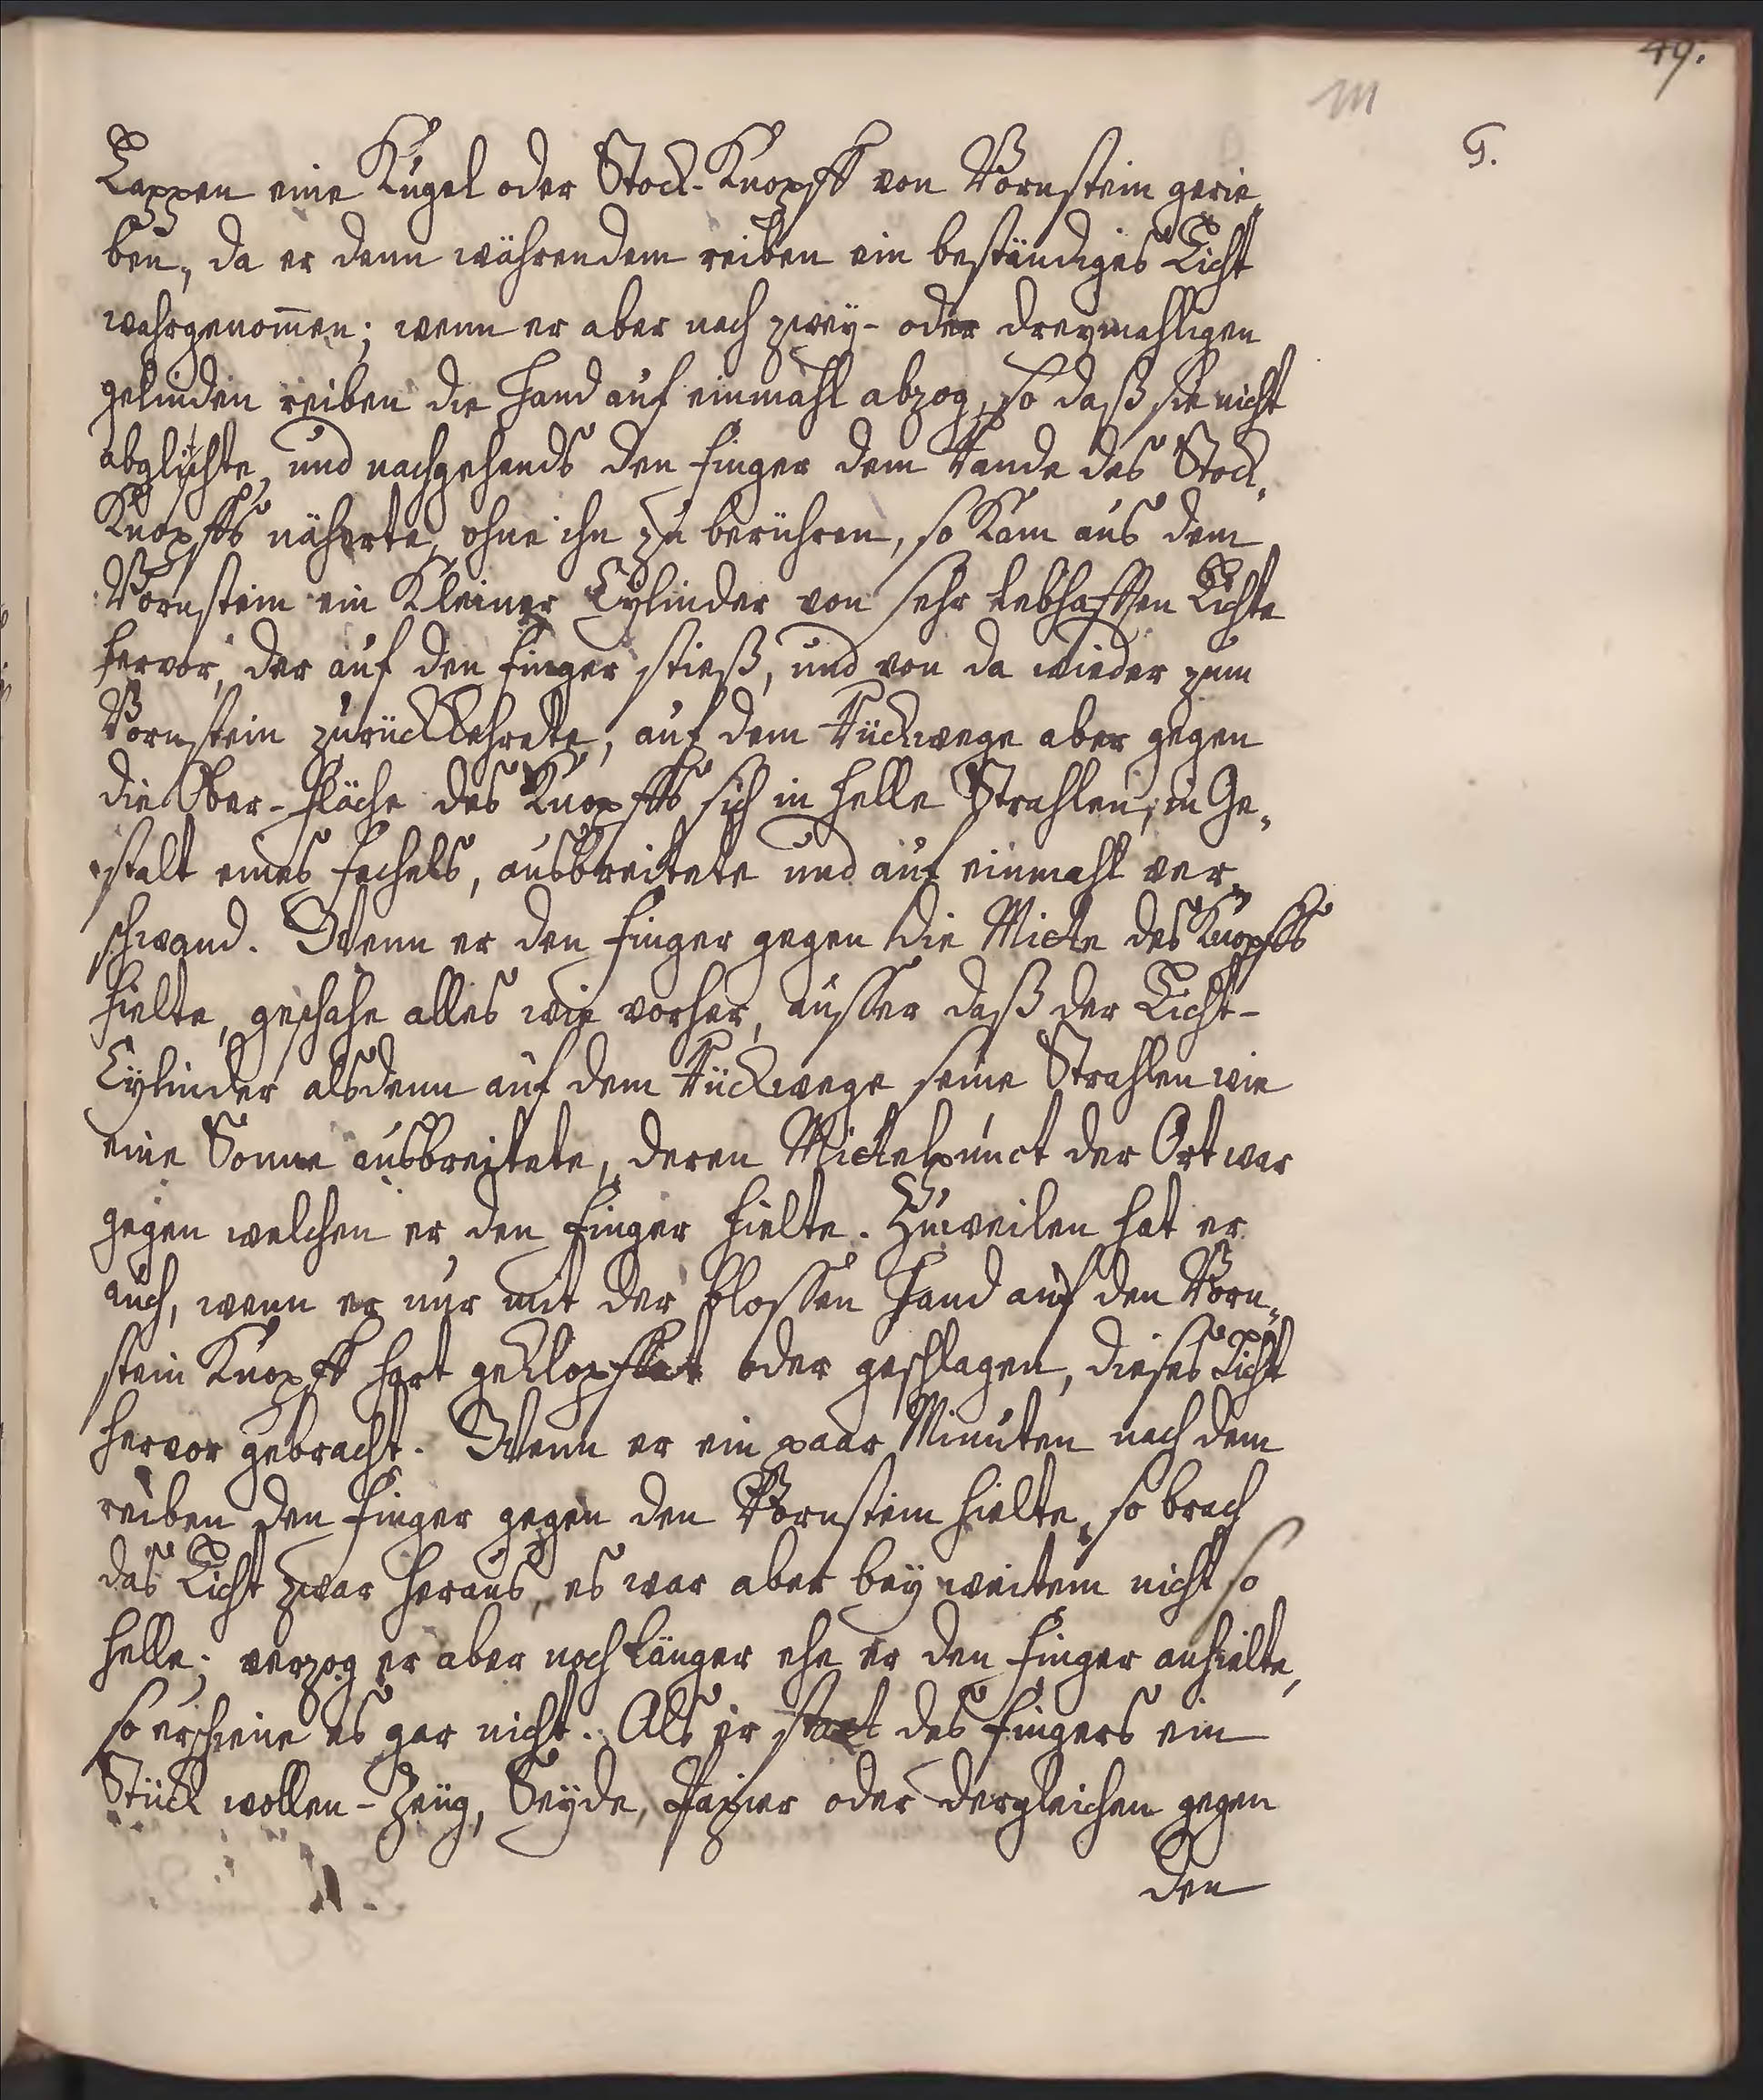 49.
m
G.
Lappen eine Kugel oder Stock-Knopff von Börnstein gerie„
ben, da er denn währendem reiben ein beständiges Licht
wahrgenom̄en; wenn er aber nach zwey- oder dreymahligen
gelinden reiben die Hand auf einmahl abzog, so daß sie nicht
abglischte, und nachgehends den Finger dem Rande des Stock„
Knopffs näherte, ohne ihn zu berühren, so kam aus dem
Börnstein ein kleiner Cylinder von sehr lebhafften Lichte
hervor, der auf den Finger stieß, und von da wieder zum
Börnstein zurückkehrete, auf dem Rückwege aber gegen
die Ober-Fläche des Knopffs sich in helle Strahlen, in Ge„
stalt eines Fechels, ausbreitete und auf einmahl ver„
schwand. Wenn er den Finger gegen die Mitte des Knopffs
hielte, geschahe alles wie vorher, ausser daß der Licht-
Cylinder alsdenn auf dem Rückwege seine Strahlen wie
eine Sonne ausbreitete, deren Mittelpunct der Ort war
gegen welchen er den Finger hielte. Zuweilen hat er
auch, wenn er nur mit der blossen Hand auf den Börn„
stein Knopff hart geklopffet oder geschlagen, dieses Licht
hervor gebracht. Wenn er ein paar Minuten nach dem
reiben den Finger gegen den Börnstein hielte, so brach
das Licht zwar heraus, es war aber bey weitem nicht so
helle; verzog er aber noch länger ehe er den Finger anhielte,
so erschiene es gar nicht. Als er statt des Fingers ein
Stück wollen-Zeug, Seyde, Papier oder dergleichen gegen
den